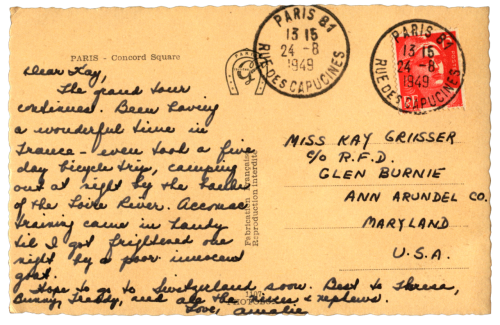 PARIS - Concord Square
Dear Kay,
The grand tour
continues. Been having
a wonderful time in
France - even took a five
day bicycle trip, camping
out at night by the banks
of the Loire River. Accomac
training came in handy
til I got frightened one
night by a poor innocent
goat.
Hope to go to Switzerland soon. Best to Therese,
Bunny, Freddy, and all the nieces & nephews.
Love, Amalie
Fabrication Française
Reproduction interdite
PARIS 81
13 15
24 - 8
1949
RUE DES CAPUCINES
PARIS 81
13 15
24 - 8
1949
RUE DES CAPUCINES
MISS KAY GRIISSER
C/O R.F.D.
GLEN BURNIE
ANN ARUNDEL CO.
MARYLAND
U.S.A.